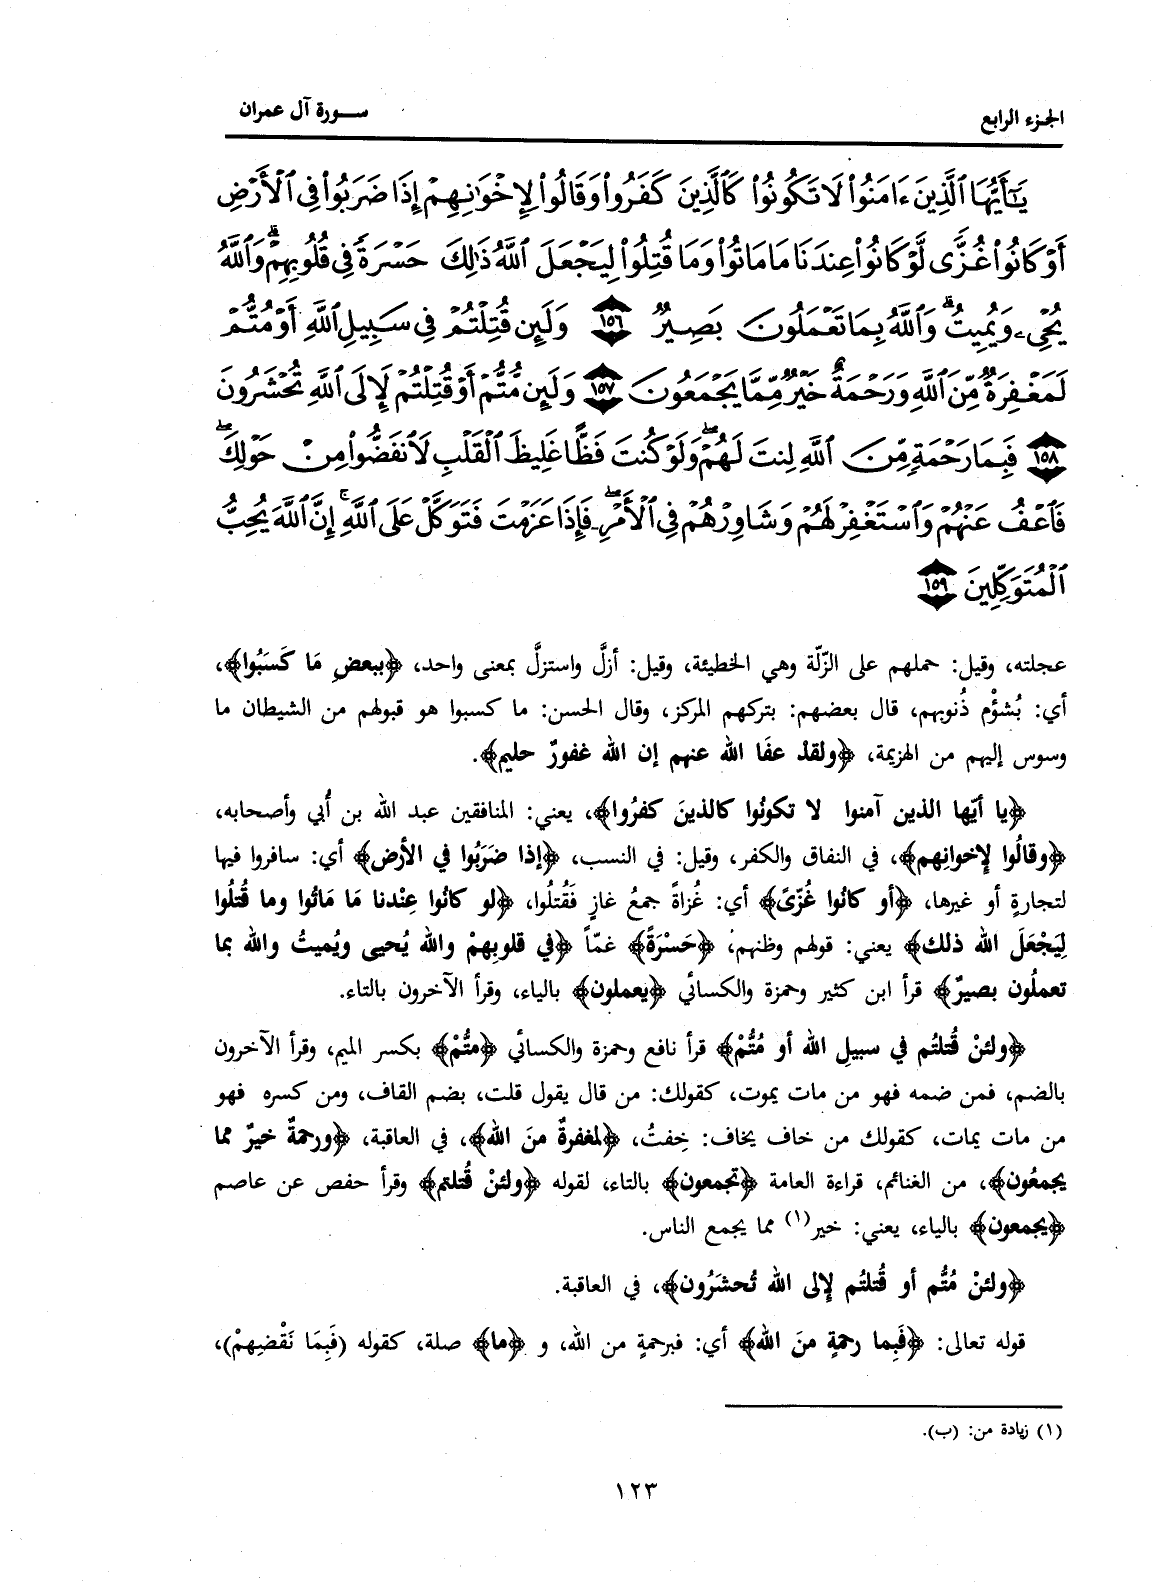 الجزء الرابع
سورة آل عمران
يَٰٓأَيُّهَا ٱلَّذِينَ ءَامَنُوا۟ لَا تَكُونُوا۟ كَٱلَّذِينَ كَفَرُوا۟ وَقَالُوا۟ لِإِخْوَٰنِهِمْ إِذَا ضَرَبُوا۟ فِى ٱلْأَرْضِ
أَوْ كَانُوا۟ غُزًّى لَّوْ كَانُوا۟ عِندَنَا مَا مَاتُوا۟ وَمَا قُتِلُوا۟ لِيَجْعَلَ ٱللَّهُ ذَٰلِكَ حَسْرَةً فِى قُلُوبِهِمْ ۗ وَٱللَّهُ
يُحْىِۦ وَيُمِيتُ ۗ وَٱللَّهُ بِمَا تَعْمَلُونَ بَصِيرٌ ١٥٦ وَلَئِن قُتِلْتُمْ فِى سَبِيلِ ٱللَّهِ أَوْ مُتُّمْ
لَمَغْفِرَةٌ مِّنَ ٱللَّهِ وَرَحْمَةٌ خَيْرٌ مِّمَّا يَجْمَعُونَ ١٥٧ وَلَئِن مُّتُّمْ أَوْ قُتِلْتُمْ لَإِلَى ٱللَّهِ تُحْشَرُونَ
١٥٨ فَبِمَا رَحْمَةٍ مِّنَ ٱللَّهِ لِنتَ لَهُمْ ۖ وَلَوْ كُنتَ فَظًّا غَلِيظَ ٱلْقَلْبِ لَٱنفَضُّوا۟ مِنْ حَوْلِكَ ۖ
فَٱعْفُ عَنْهُمْ وَٱسْتَغْفِرْ لَهُمْ وَشَاوِرْهُمْ فِى ٱلْأَمْرِ ۖ فَإِذَا عَزَمْتَ فَتَوَكَّلْ عَلَى ٱللَّهِ ۚ إِنَّ ٱللَّهَ يُحِبُّ
ٱلْمُتَوَكِّلِينَ ١٥٩
عجلته، وقيل: حملهم على الزّلّة وهي الخطيئة، وقيل: أزلَّ واستزلَّ بمعنى واحد، ﴿ببعضِ مَا كَسَبُوا﴾،
أي: بُشؤْم ذُنوبهم، قال بعضهم: بتركهم المركز، وقال الحسن: ما كسبوا هو قبولهم من الشيطان ما
وسوس إليهم من الهزيمة، ﴿ولقدْ عفَا الله عنهم إن الله غفورٌ حليم﴾.
﴿يا أيّها الذين آمنوا لا تكونُوا كالذينَ كفرُوا﴾، يعني: المنافقين عبد الله بن أُبي وأصحابه،
﴿وقالُوا لإخوانِهم﴾، في النفاق والكفر، وقيل: في النسب، ﴿إذا ضرَبُوا في الأرض﴾ أي: سافروا فيها
لتجارةٍ أو غيرها، ﴿أو كانُوا غُزّىً﴾ أي: غُزاةً جمعُ غازٍ فَقُتلُوا، ﴿لو كانُوا عِنْدنا مَا مَاتُوا وما قُتلُوا
لِيَجْعَلَ الله ذلك﴾ يعني: قولهم وظنهم، ﴿حَسْرَةً﴾ غمّاً ﴿في قلوبِهمْ والله يُحيى ويُميتُ والله بما
تعملُون بصيرٌ﴾ قرأ ابن كثير وحمزة والكسائي ﴿يعملون﴾ بالياء، وقرأ الآخرون بالتاء.
﴿ولئنْ قُتلتُم في سبيلِ الله أو مُتُّمْ﴾ قرأ نافع وحمزة والكسائي ﴿مِتُّمْ﴾ بكسر الميم، وقرأ الآخرون
بالضم، فمن ضمه فهو من مات يموت، كقولك: من قال يقول قلت، بضم القاف، ومن كسره فهو
من مات يمات، كقولك من خاف يخاف: خِفتُ، ﴿لمغفرةٌ منَ الله﴾، في العاقبة، ﴿ورحمةٌ خيرٌ مما
يجمعُون﴾، من الغنائم، قراءة العامة ﴿تجمعون﴾ بالتاء، لقوله ﴿ولئنْ قُتلتم﴾ وقرأ حفص عن عاصم
﴿يجمعون﴾ بالياء، يعني: خير(١) مما يجمع الناس.
﴿ولئنْ مُتُّم أو قُتلتُم لإلى الله تُحشَرُون﴾، في العاقبة.
قوله تعالى: ﴿فَبِما رحمةٍ منَ الله﴾ أي: فبرحمةٍ من الله، و ﴿ما﴾ صلة، كقوله (فَبِمَا نَقْضِهِمْ)،
(١) زيادة من: (ب).
١٢٣